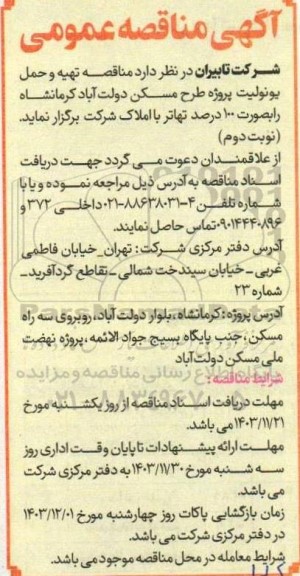 آگهی مناقصه عمومی
شرکت تابیران در نظر دارد مناقصه تهیه و حمل
یونولیت پروژه طرح مسکن دولت‌آباد کرمانشاه
رابصورت ۱۰۰ درصد تهاتر با املاک شرکت برگزار نماید.
(نوبت دوم)
از علاقمندان دعوت می گردد جهت دریافت
اسناد مناقصه به آدرس ذیل مراجعه نموده و یا با
شماره تلفن ۴-۸۸۶۳۸۰۳۱-۰۲۱ داخلی ۳۷۲ و
۰۹۰۱۴۴۴۰۸۹۶ تماس حاصل نمایند.
آدرس دفتر مرکزی شرکت: تهران_خیابان فاطمی
غربی_خیابان سیندخت شمالی_تقاطع گردآفرید_
شماره ۲۳
آدرس پروژه: کرمانشاه، بلوار دولت آباد، روبروی سه راه
مسکن، جنب پایگاه بسیج جواد الائمه، پروژه نهضت
ملی مسکن دولت‌آباد
شرایط مناقصه:
مهلت دریافت اسناد مناقصه از روز یکشنبه مورخ
۱۴۰۳/۱۱/۲۱ می باشد.
مهلت ارائه پیشنهادات تا پایان وقت اداری روز
سه شنبه مورخ ۱۴۰۳/۱۱/۳۰ به دفتر مرکزی شرکت
می باشد.
زمان بازگشایی پاکات روز چهارشنبه مورخ ۱۴۰۳/۱۲/۰۱
در دفتر مرکزی شرکت می باشد.
شرایط معامله در محل مناقصه موجود می باشد.